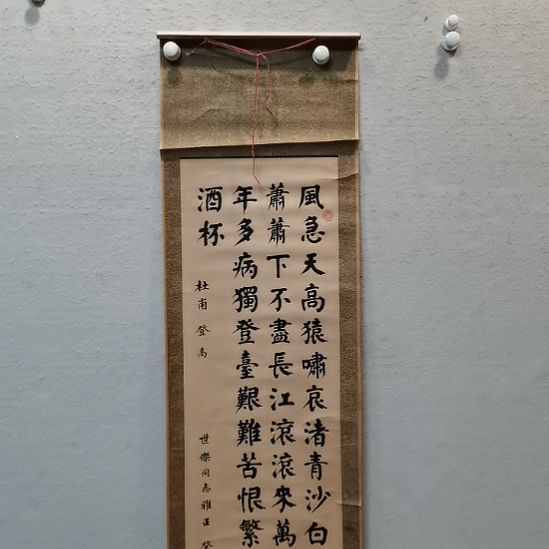 風急天高猿嘯哀渚青沙白
蕭蕭下不盡長江滾滾來萬
年多病獨登臺艱難苦恨繁
酒杯
杜甫 登高
世傑同志雅正